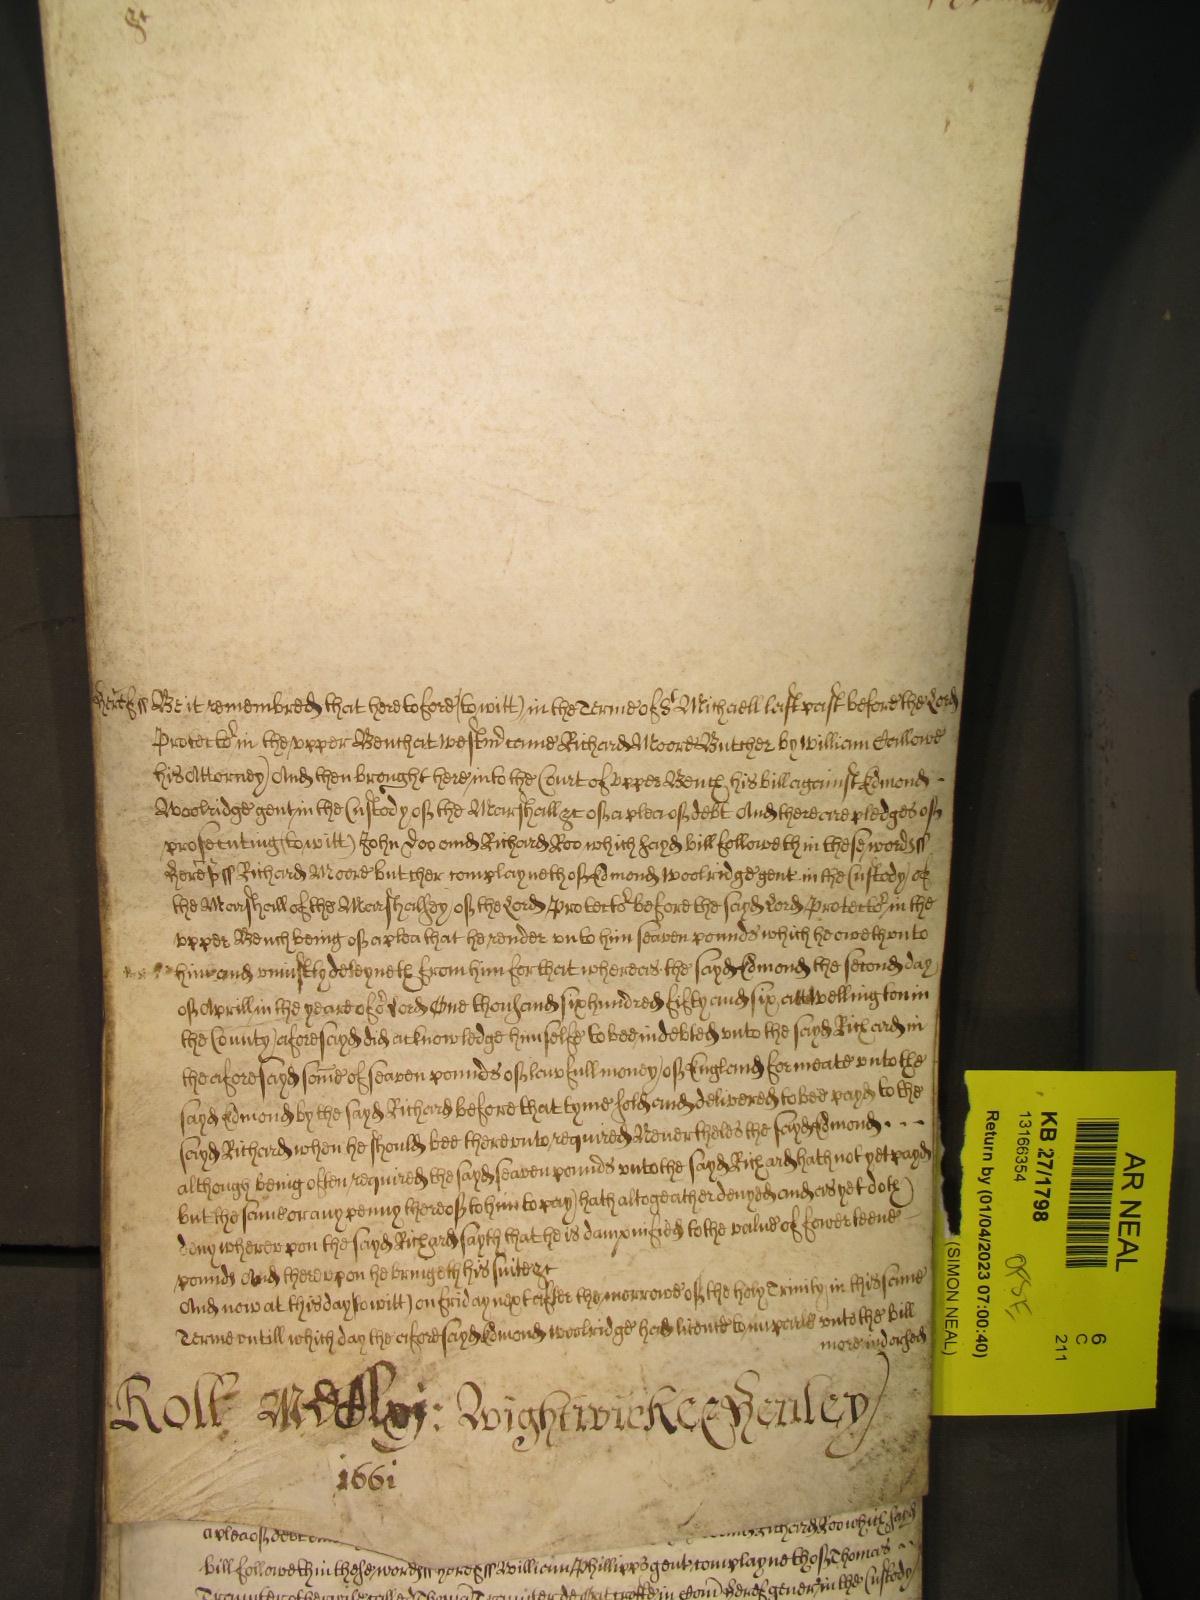 Hertf ss Be it remembred that heretofore (to witt) in the Terme of St Michaell last past before the Lord
Protector in the upper Bench at Westmr came Richard Moore Butcher by William Gallowe
his Attorney And then brought here into the Court of upper Bench his bill against Edmond
Woolridge gent in the Custody of the Marshall &c of a plea of debt And there are pledges of
prosecuting (to witt) John Doo and Richard Roo which sayd bill followeth in these words ss
Hertf ss Richard Moore butcher complayneth of Edmond Woolridge gent in the Custody of
the Marshall of the Marshalsey of the Lord Protector before the sayd Lord Protector in the
upper Bench being of a plea that he render unto him seaven pounds which he oweth unto
him and uniustly deteyneth from him for that whereas the sayd Edmond the second day
of Aprill in the yeare of or Lord One thousand six hundred fifty and six att Wellington in
the County aforesayd did acknowledge himselfe to bee indebted unto the sayd Richard in
the aforesayd some of seaven pounds of lawfull money of England for meate unto the
sayd Edmond by the sayd Richard before that tyme sold and delivered to bee payd to the
sayd Richard when he should bee thereunto required Nevertheles the sayd Edmond
although being often required the sayd seaven pounds unto the sayd Richard hath not yet payd
but the same or any penny thereof to him to pay hath altogeather denyed and as yet doth
deny whereupon the sayd Richard sayth that he is dampnifyed to the value of fowerteene
pounds And thereupon he bringeth his suite &c
And now at this day (to witt) on friday next after the morrowe of the holy Trinity in this same
Terme untill which day the aforesayd Edmond Woolridge had licence to imparle unto the bill
more indorsed
Roll
Wightwicke & Henley
1661
a plea of debt Richard Roo which sayd
bill followeth in these words ss Heref ss William Phillipps gent complayneth of Thomas
in Com Heref gener in the Custody
AR NEAL
6
C
211
KB 27/1798
13166354
Return by (01/04/2023 07:00:40)
(SIMON NEAL)